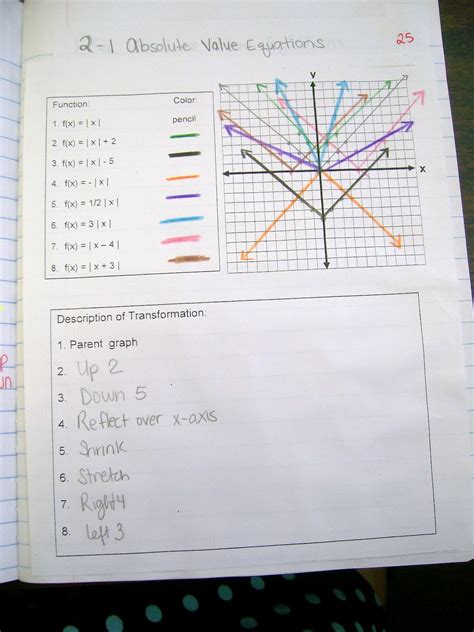 2-1 Absolute Value Equations
25
Function: Color:
1. f(x) = | x | pencil
2. f(x) = | x | + 2
3. f(x) = | x | - 5
4. f(x) = - | x |
5. f(x) = 1/2 | x |
6. f(x) = 3 | x |
7. f(x) = | x – 4 |
8. f(x) = | x + 3 |
Y
X
Description of Transformation:
1. Parent graph
2. Up 2
3. Down 5
4. Reflect over x-axis
5. Shrink
6. Stretch
7. Right 4
8. left 3